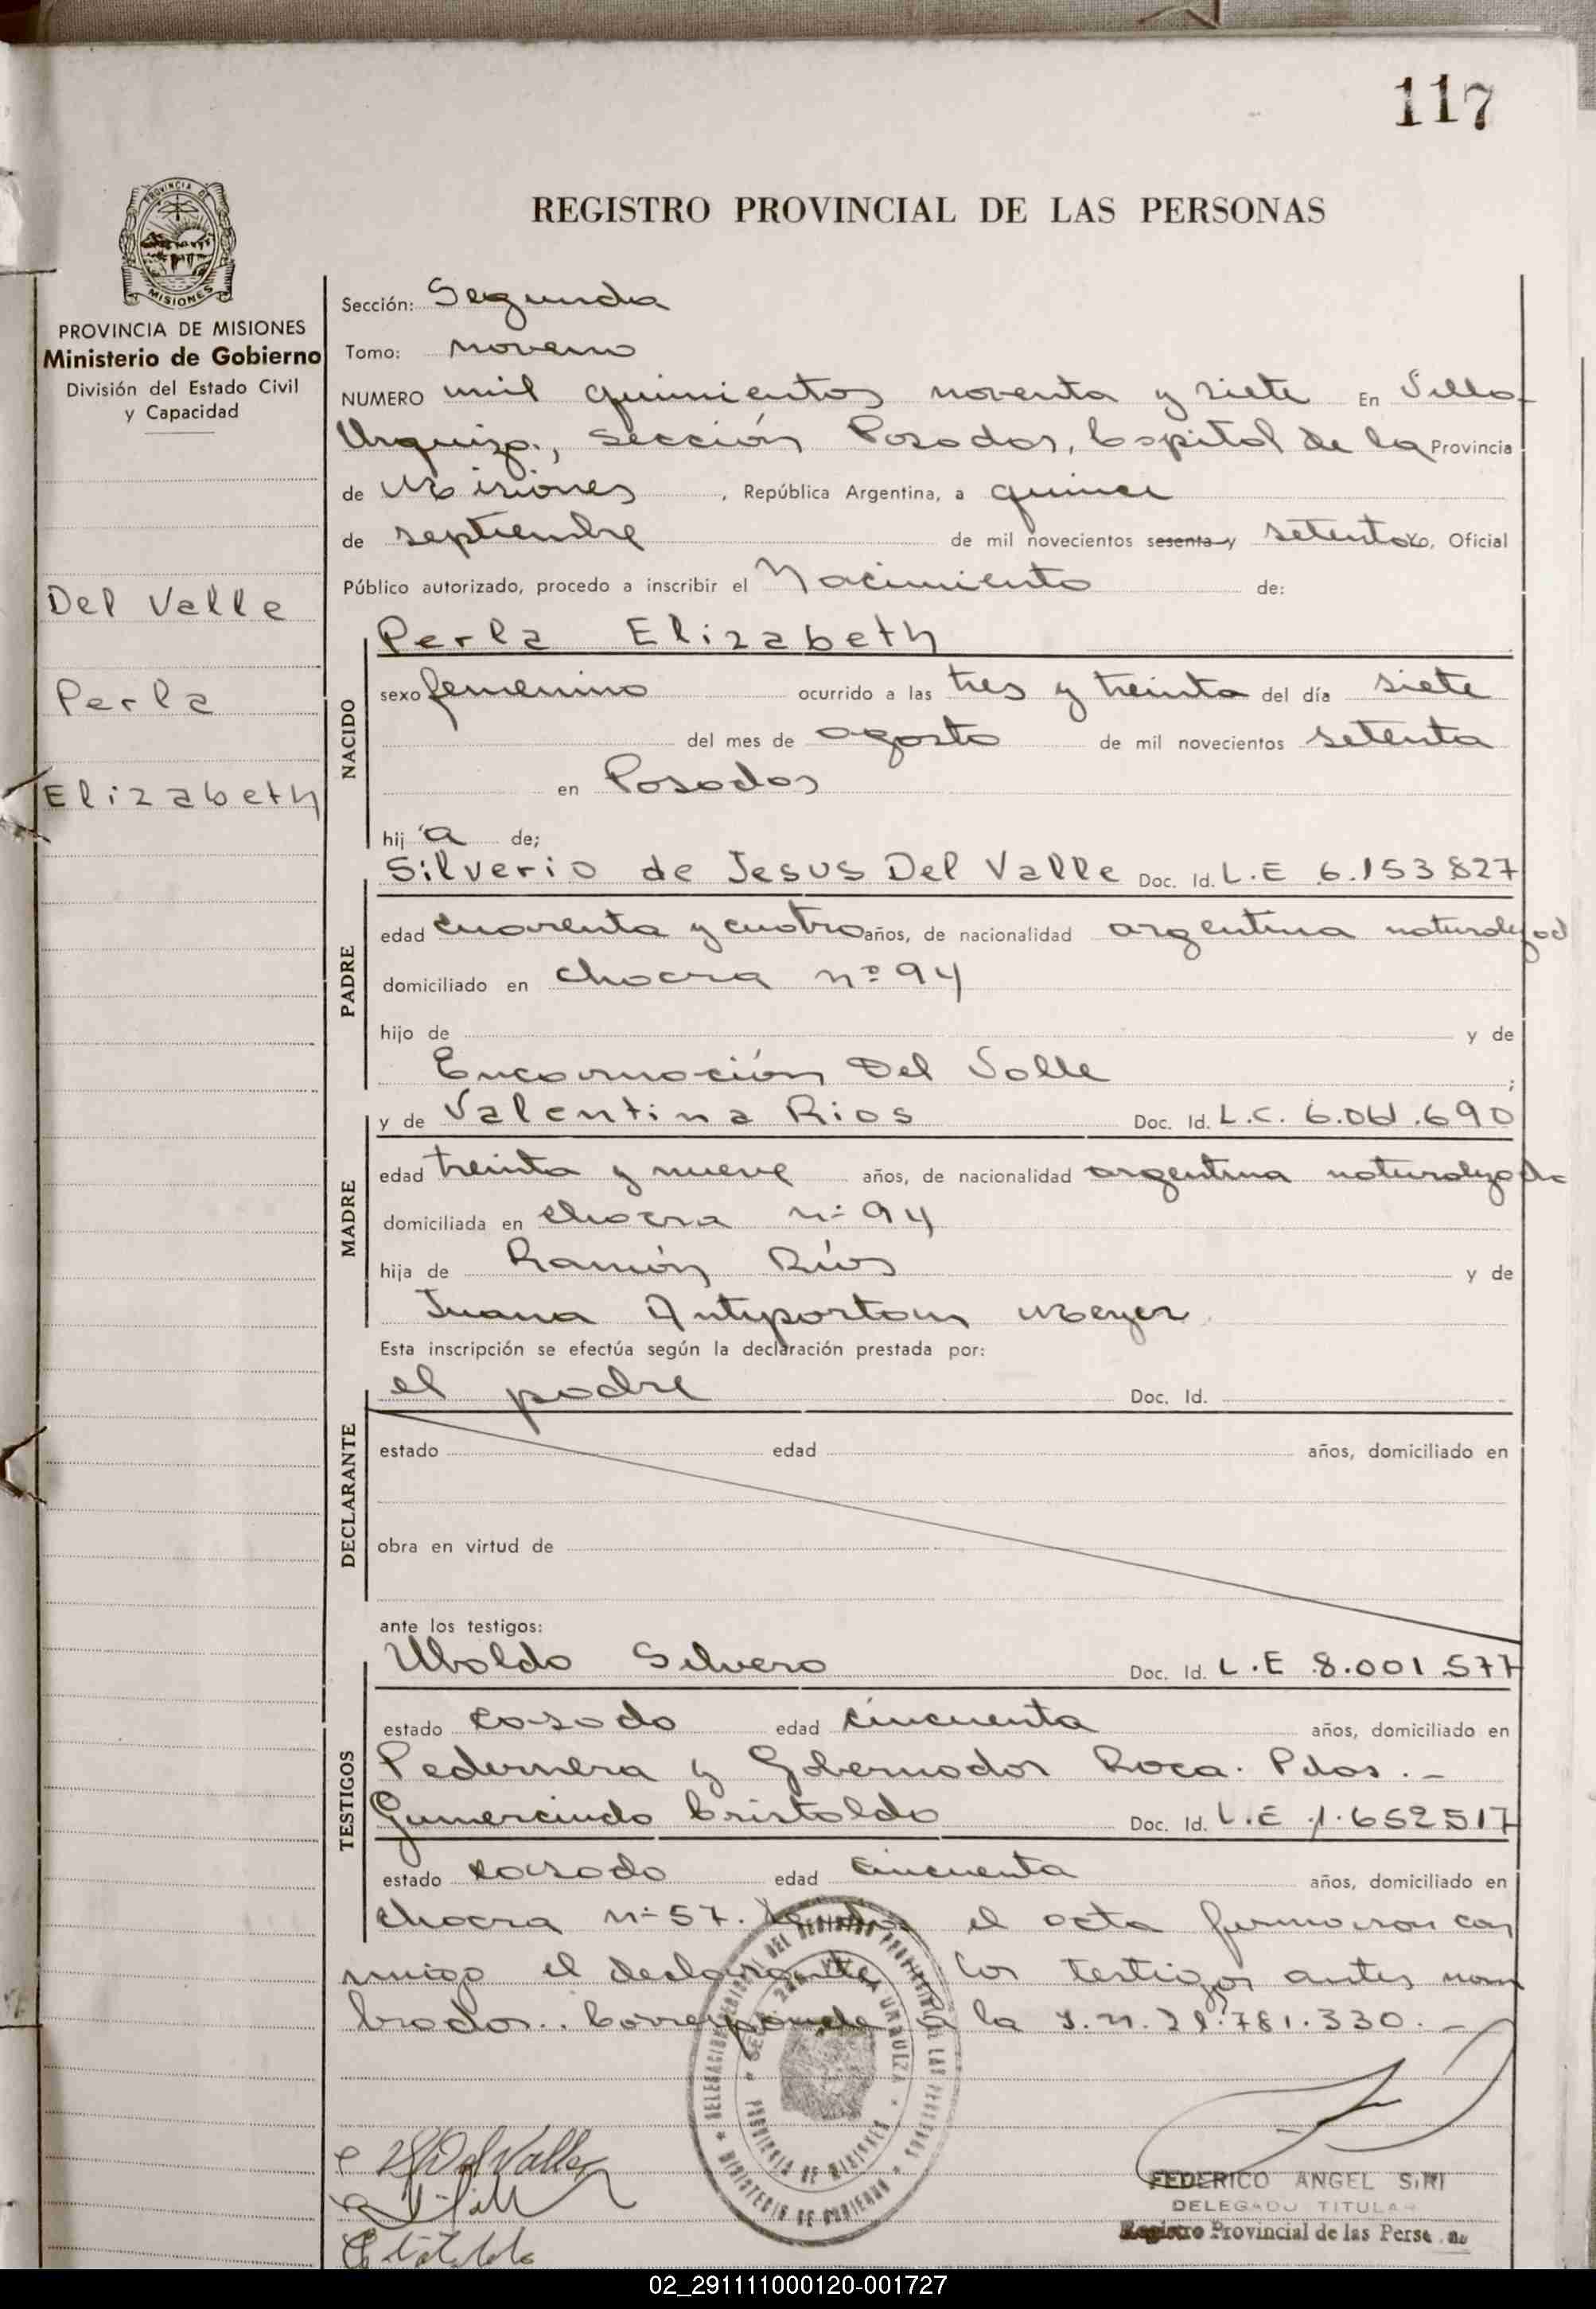 117
REGISTRO PROVINCIAL DE LAS PERSONAS
PROVINCIA DE
MISIONES
PROVINCIA DE MISIONES
Ministerio de Gobierno
División del Estado Civil
y Capacidad
Del Valle
Perla
Elizabeth
Sección: Segunda
Tomo: noveno
NUMERO mil quinientos noventa y siete En Villa
Urquiza, sección Posadas, Capital de la Provincia
de Misiones, República Argentina, a quince
de septiembre de mil novecientos sesenta y setenta yo, Oficial
Público autorizado, procedo a inscribir el Nacimiento de:
NACIDO
Perla Elizabeth
sexo femenino ocurrido a las tres y treinta del día siete
del mes de agosto de mil novecientos setenta
en Posadas
hij a de;
PADRE
Silverio de Jesus Del Valle Doc. Id. L.E 6.153827
edad cuarenta y cuatro años, de nacionalidad argentina naturalizad
domiciliado en chacra nº 94
hijo de y de
Encarnación Del Valle ;
MADRE
y de Valentina Rios Doc. Id. L.C. .690
edad treinta y nueve años, de nacionalidad argentina naturalizada
domiciliada en chacra nº 94
hija de Ramón Ríos y de
Juana Meyer
Esta inscripción se efectúa según la declaración prestada por:
DECLARANTE
el padre Doc. Id.
estado edad años, domiciliado en
obra en virtud de
ante los testigos:
TESTIGOS
Ubaldo Silvero Doc. Id. L.E 8.001.577
estado casado edad cincuenta años, domiciliado en
Pedernera y Gobernador Roca. Pdas. -
Gumercindo Cristaldo Doc. Id. L.E 1.652517
estado casado edad cincuenta años, domiciliado en
chacra nº 57. el acta firmaron con
migo el declarante los testigos antes nom
brados.. Corresponde a la .781.330. -
DELEGACION DEL REGISTRO PROVINCIAL DE LAS PERSONAS
MINISTERIO DE GOBIERNO
VILLA URQUIZA
PROVINCIA DE MISIONES
Del Valle
FEDERICO ANGEL SIRI
DELEGADO TITULAR
Registro Provincial de las Perso
02_291111000120-001727